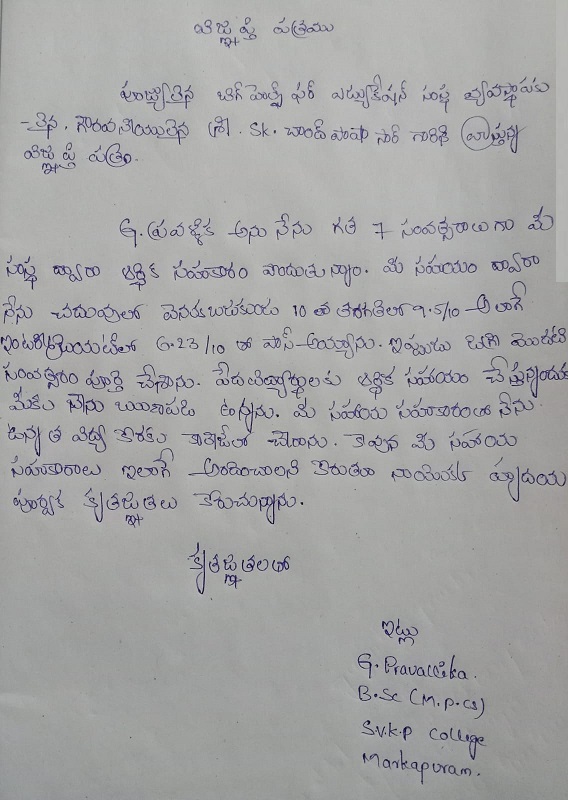 విజ్ఞప్తి పత్రము
పూజ్యులైన బిగ్ హెల్ప్ ఫర్ ఎడ్యుకేషన్ సంస్థ వ్యవస్థాపకు
-లైన. గౌరవనీయులైన శ్రీ. Sk. చాంద్ పాషా సార్ గారికి వ్రాస్తున్న
విజ్ఞప్తి పత్రం.
G. ప్రవళ్ళిక అను నేను గత 7 సంవత్సరాలుగా మీ
సంస్థ ద్వారా ఆర్థిక సహకారం పొందుతున్నాం. మీ సహాయం ద్వారా
నేను చదువులో వెనకబడకుండు 10 వ తరగతిలో 9.5/10 అలాగే
ఇంటర్మీడియట్‌లో 6.23/10 తో పాస్ అయ్యాను. ఇప్పుడు డిగ్రీ మొదటి
సంవత్సరం పూర్తి చేశాను. పేదవిద్యార్థులకు ఆర్థిక సహాయం చేస్తున్నందుకు
మీకు నేను ఋణపడి ఉన్నాను. మీ సహాయ సహకారంతో నేను
ఉన్నత విద్య కొరకు కాలేజీలో చేరాను. కావున మీ సహాయ
సహకారాలు ఇలాగే అందించాలని కోరుతూ నాయొక్క హృదయ
పూర్వక కృతజ్ఞతలు కోరుచున్నాను.
కృతజ్ఞతలతో
ఇట్లు
G. Pravallika.
B.Sc (M.p.cs)
S.V.K.P College
Markapuram.